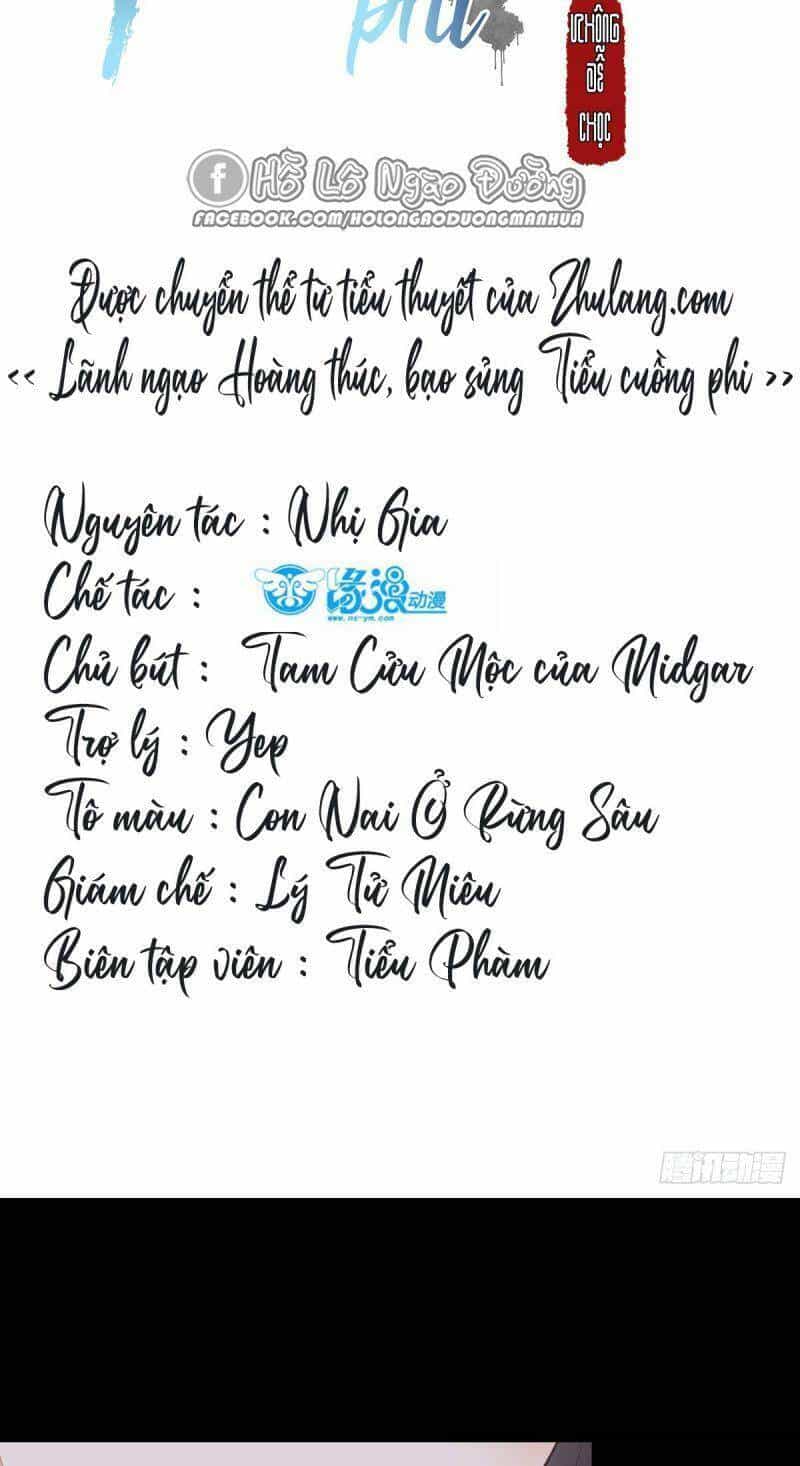 phi
KHÔNG
DỄ
CHỌC
f Hồ Lô Ngào Đường
FACEBOOK.COM/HOLONGAODUONGMANHUA
Được chuyển thể từ tiểu thuyết của Zhulang.com
<< Lãnh ngạo Hoàng thúc, bạo sủng Tiểu cuồng phi >>
Nguyên tác : Nhị Gia
Chế tác : 缘漫动漫
www.ns-ym.com
Chủ bút : Tam Cửu Mộc của Midgar
Trợ lý : Yep
Tô màu : Con Nai Ở Rừng Sâu
Giám chế : Lý Tử Miêu
Biên tập viên : Tiểu Phàm
腾讯动漫